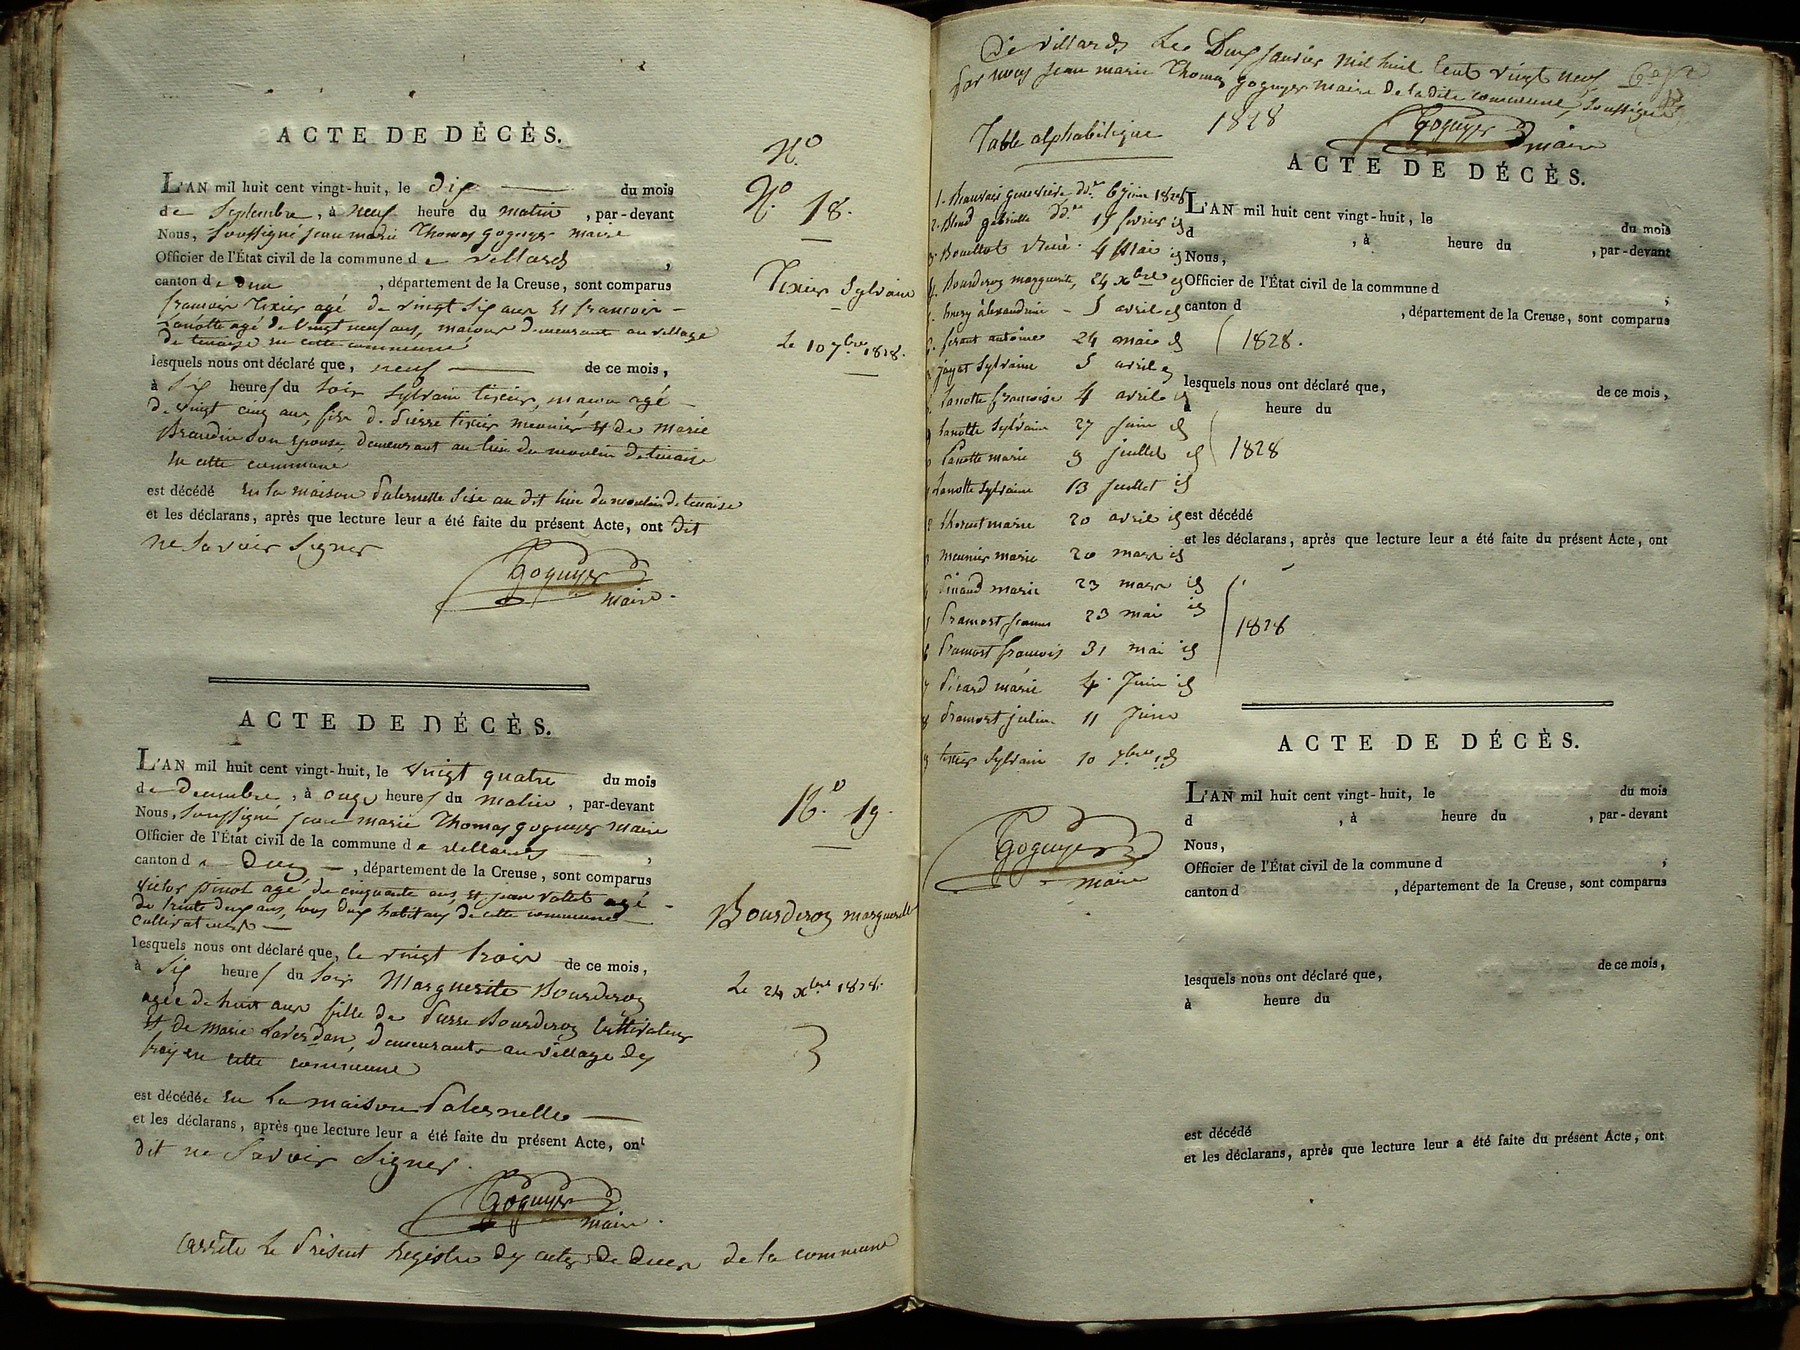 ACTE DE DÉCÈS.
L'AN mil huit cent vingt-huit, le dix du mois
de Septembre, à neuf heure du matin, par-devant
Nous, Soussigné jean marie Thomas goguyer maire
Officier de l'État civil de la commune de villards,
canton de dun, département de la Creuse, sont comparus
francois Tixier agé de vingt six ans Et francois
Lanotte agé de vingt neuf ans, macons demeurants au village
de en cette commune
lesquels nous ont déclaré que, neuf de ce mois,
à six heures du soir Sylvain tixier, macon agé
de vingt cinq ans, fils de Pierre tixier meunier et de marie
son epouse, demeurant au lieu du moulin de
en cette commune
est décédé en la maison Paternelle sise au dit lieu du moulin de
et les déclarans, après que lecture leur a été faite du présent Acte, ont dit
ne savoir signer
Goguyer
maire.
N.o
N.o 18.
Tixier Sylvain
Le 10 7.bre 1828.
ACTE DE DÉCÈS.
L'AN mil huit cent vingt-huit, le vingt quatre du mois
de decembre, à onze heures du matin, par-devant
Nous, soussigné jean marie Thomas goguyer maire
Officier de l'État civil de la commune de villards,
canton de Dun, département de la Creuse, sont comparus
victor pinot agé de cinquante ans, et jean vallet agé
de trente deux ans, tous deux habitans de cette commune
cultivateurs
lesquels nous ont déclaré que, le vingt trois de ce mois,
à six heures du soir Marguerite Bourderoy
agée de huit ans fille de Pierre Bourderoy Cultivateur
et de marie Laverdan, demeurants au village des
en cette commune
est décédée en la maison Paternelle
et les déclarans, après que lecture leur a été faite du présent Acte, ont
dit ne savoir signer.
Goguyer
maire.
N.o 19.
Bourderoy marguerite
Le 24 xbre 1828.
3
arrêté le Présent Registre des actes de deces de la commune
de villards Le Deux janvier mil huit Cent vingt neuf
Par nous jean marie Thomas goguyer maire de la dite commune, soussigné
Goguyer
maire
Table alphabétique 1828
1. Beauvais genevieve dd.ee 6 juin 1828
2. Blond gabrielle dd.ee 15 fevrier id
3. Bouillot 4 Mai id
4. Bourderoy marguerite, 24 xbre id
alexandrine - 5 avril id
ferant antoine 24 mai id
jayat Sylvain 5 avril id
Lanotte francoise 4 avril id
Lanotte Sylvain 27 juin id
Lanotte marie 9 juillet id
Lanotte Sylvaine 13 juillet id
marie 20 avril id
meunier marie 20 mars id
Pinaud marie 23 mars id
Pramort jeanne 23 mai id
Pramort francois 31 mai id
Picard marie 4 Juin id
Pramort julien 11 Juin
tixier Sylvain 10 7bre id
1828.
1828
1828
Goguyer
maire
ACTE DE DÉCÈS.
L'AN mil huit cent vingt-huit, le du mois
d , à heure du , par-devant
Nous,
Officier de l'État civil de la commune d ,
canton d , département de la Creuse, sont comparus
lesquels nous ont déclaré que, de ce mois,
à heure du
est décédé
et les déclarans, après que lecture leur a été faite du présent Acte, ont
ACTE DE DÉCÈS.
L'AN mil huit cent vingt-huit, le du mois
d , à heure du , par-devant
Nous,
Officier de l'État civil de la commune d ,
canton d , département de la Creuse, sont comparus
lesquels nous ont déclaré que, de ce mois,
à heure du
est décédé
et les déclarans, après que lecture leur a été faite du présent Acte, ont